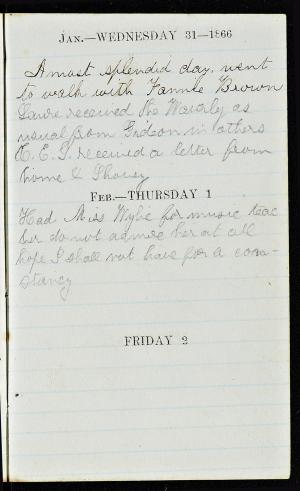 JAN.—WEDNESDAY 31—1866
A most splendid day. went
to walk with Fannie Brown
received the Waverly as
usual from Gideon
received a letter from
home &
FEB.—THURSDAY 1
Had Miss Wylie for music teac
her do not admire her at all
hope I shall not have for a con-
stancy
FRIDAY 2